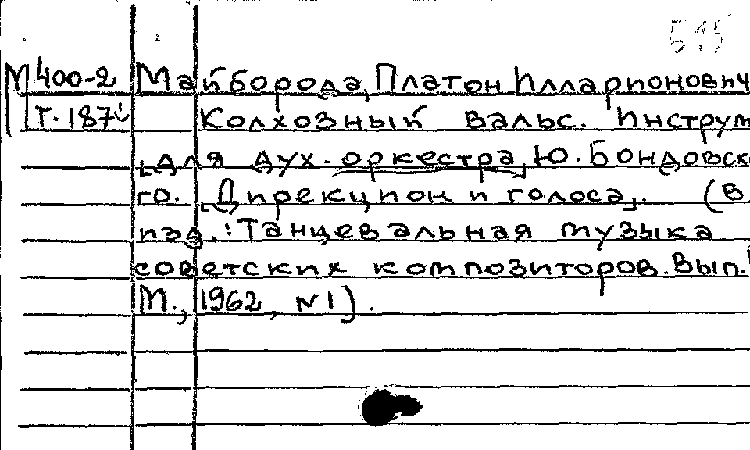 545
М 400-2 Майборода, Платон Илларионович
Т. 187 Колхозный вальс. Инструм
для дух. оркестра Ю. Бондовско
го. Дирекцион и голоса. (В
изд.: Танцевальная музыка
советских композиторов. Вып.
М., 1962, №1).